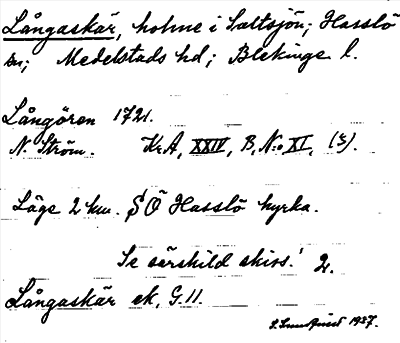 Långaskär, holme i Saltsjön; Hasslö
sn; Medelstads hd; Blekinge l.
Långören 1721.
N. Ström. Kr.A, XXIV, B, No XI, (3).
Läge 2 km. SÖ Hasslö kyrka.
Se särskild skiss! 2.
Långaskär ek. G.11.
1937.